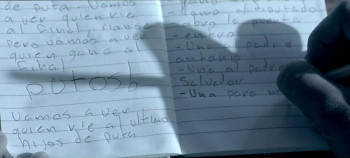 de puta Vamos
a ver quien rie
al final
Pero vamos a ver
quien gana al
final
potosh
Vamos a ver
quien rie al ultimo
hijos de puta
- llamo al diputado
la puerta
- Una padre
antonio
- Una al padre
Salvador
- Una para